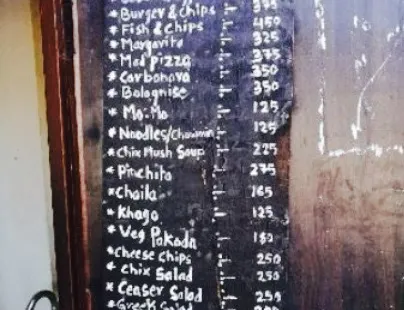 * Burger & Chips 375
* Fish & Chips 450
* Margarita 325
* Med Pizza 375
* Carbonara 350
* Bolognise 350
* Mo:Mo 125
* Noodles/Chowmin 125
* Chix Mush Soup 225
* Pituchito 275
* Choila 165
* Khago 125
* Veg Pakoda 180
* Cheese Chips 250
* Chix Salad 250
* Ceaser Salad 250
* Greek Salad